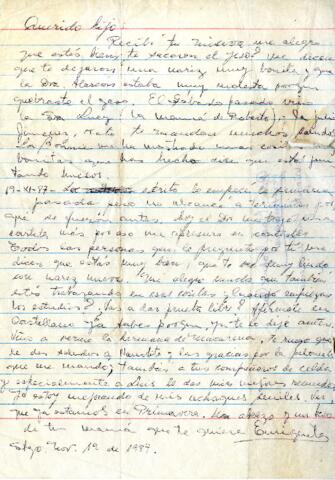 Querido hijo:
Recibí tu misiva me alegro
que estés bien, te sacaron el yeso me dicen
que te dejaron una nariz muy bonita y que
la Dra Alarcón estaba muy molesta porque
quebraste el yeso. El Sábado pasado vino
la Sra Lucy (la mamá de Roberto), la
Jimenez, te mandan muchos
La me ha mostrado unas cosas
bonitas que has hecho dice que está
tando
19-XI-77- Lo escrito lo empecé la semana
pasada pero no alcancé a terminarlo por
qué se fueron antes. Hoy el Dr me trajo una
cartita más por eso me apresuro en contestarte
Todos las personas que le pregunto por tí me
dicen que estás muy bien, que te ves muy lindo
con nariz nueva. Me alegro mucho que también
estés trabajando en esas cositas y cuando empiezas
los estudios? Vas a dar prueba libre? Afírmate en
Castellano ya sabes porque, ya te lo dije antes.
Vino a verme la hermana de Macarena, te ruego que
le des saludos a y las gracias por la
que me mandó, también a tus compañeros de celda
y especialmente a Luis le das mis mejores recuerdos
Yo estoy mejorando de mis achaques seniles. Ves
que ya estamos en Primavera. Un abrazo y un beso
de tu mamá que te quiere
Stgo. Nov. 19 de 1977.